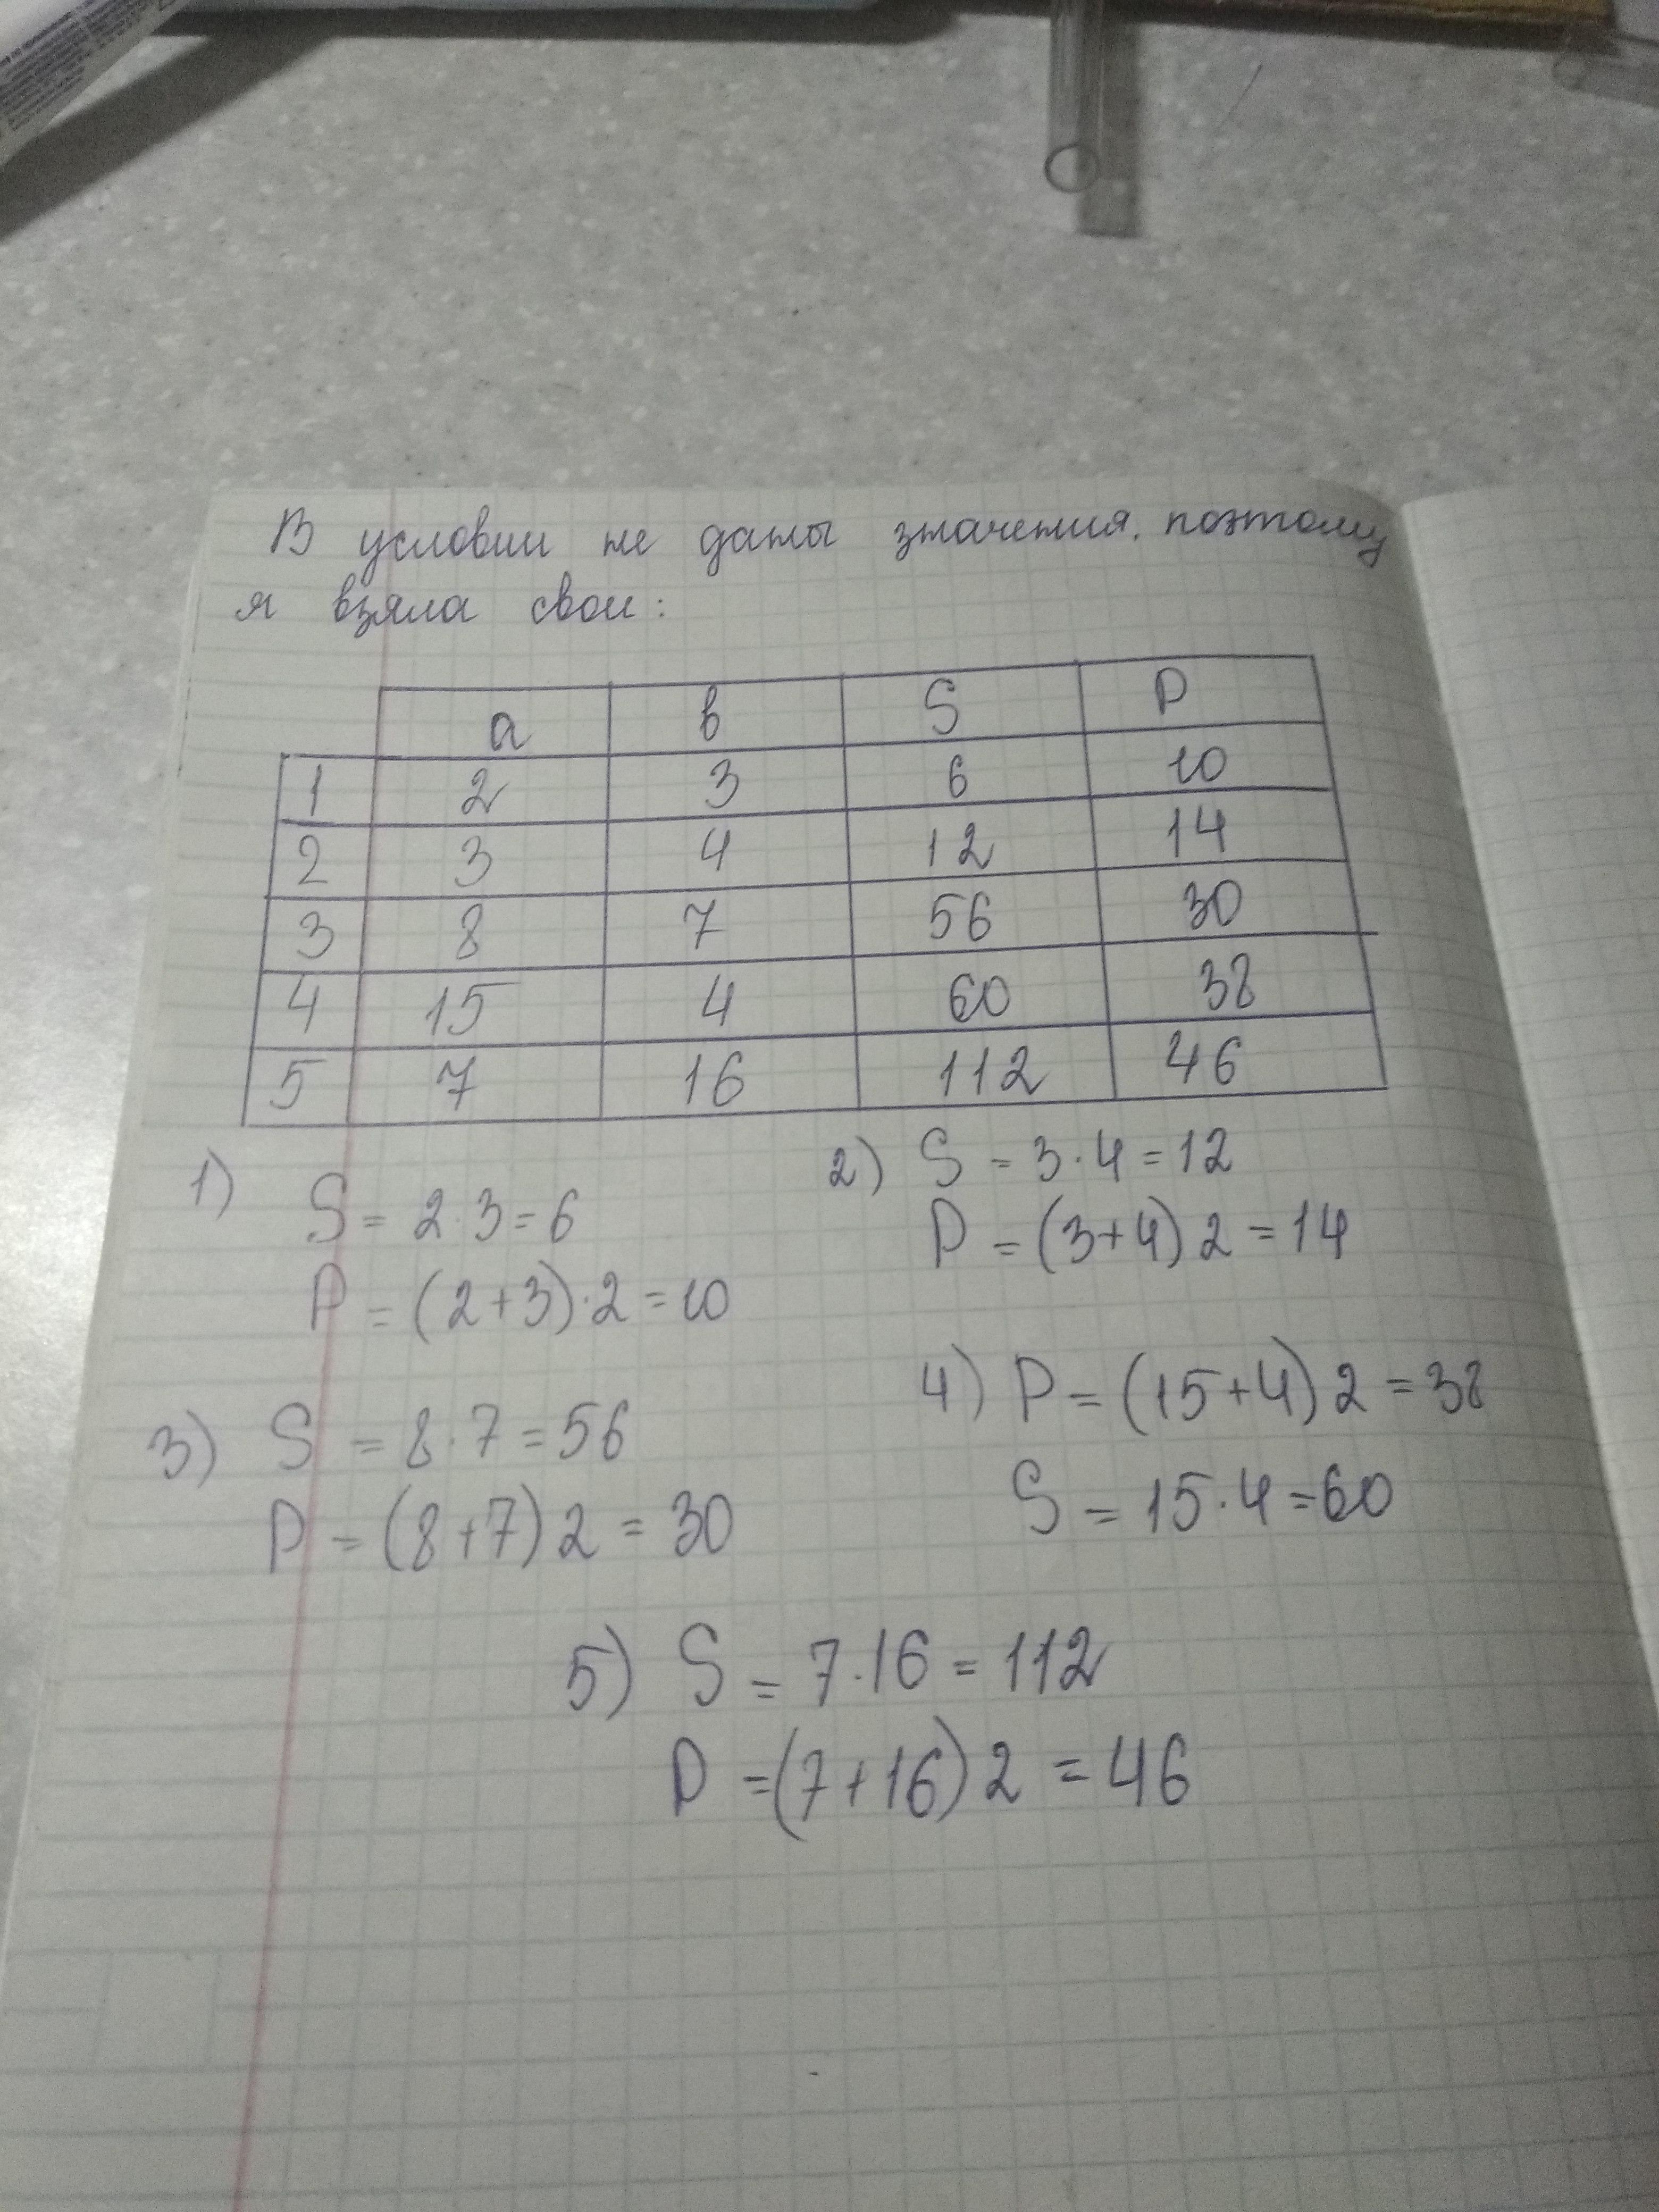 В условии не даны значения, поэтому
я взяла свои:
а в S P
1 2 3 6 10
2 3 4 12 14
3 8 7 56 30
4 15 4 60 38
5 7 16 112 46
1) S = 2·3=6
P = (2+3)·2=10
2) S = 3·4=12
P = (3+4)2=14
3) S = 8·7=56
P = (8+7)2 = 30
4) P = (15+4)2 = 38
S = 15·4=60
5) S = 7·16=112
P =(7+16)2 = 46